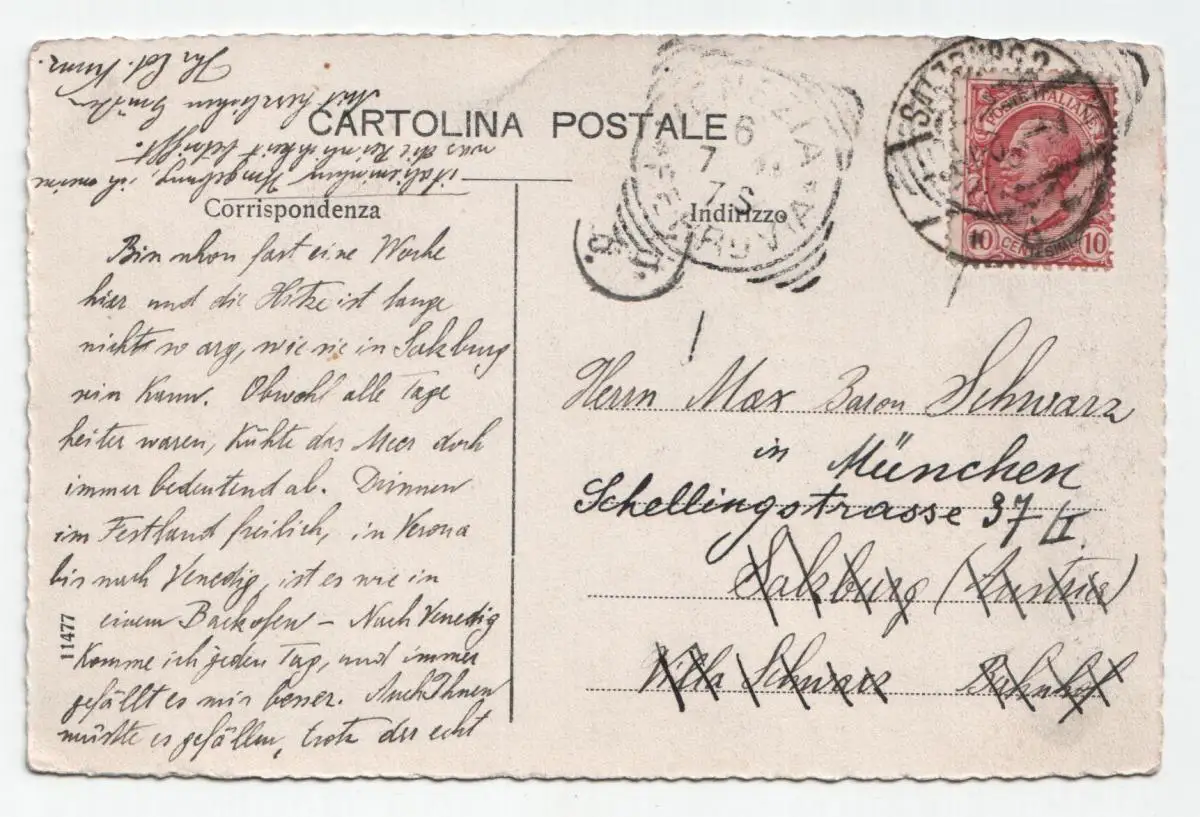 CARTOLINA POSTALE
Corrispondenza
Indirizzo
Bin schon fast eine Woche
hier und die Hitze ist lange
nicht so arg, wie sie in Salzburg
sein kann. Obwohl alle Tage
heiter waren, kühlte das Meer doch
immer bedeutend ab. Drinnen
im Festland freilich, in Verona
bis nach Venedig, ist es wie in
einem Backofen – Nach Venedig
komme ich jeden Tag, und immer
gefällt es mir besser. Auch Ihnen
müsste es gefallen, trotz der echt
italienischen Umgebung, ich meine
was die Reinlichkeit betrifft.
Mit herzlichen Grüßen
Ihr Ed.
11477
VENEZIA
FERROVIA
6
7
7 S
SALZBURG 2
POSTE ITALIANE
10 CENTESIMI 10
Herrn Max Baron Schwarz
in München
Schellingstrasse 37/I.
Salzburg (Austria)
Villa Schwarz Bahnhof